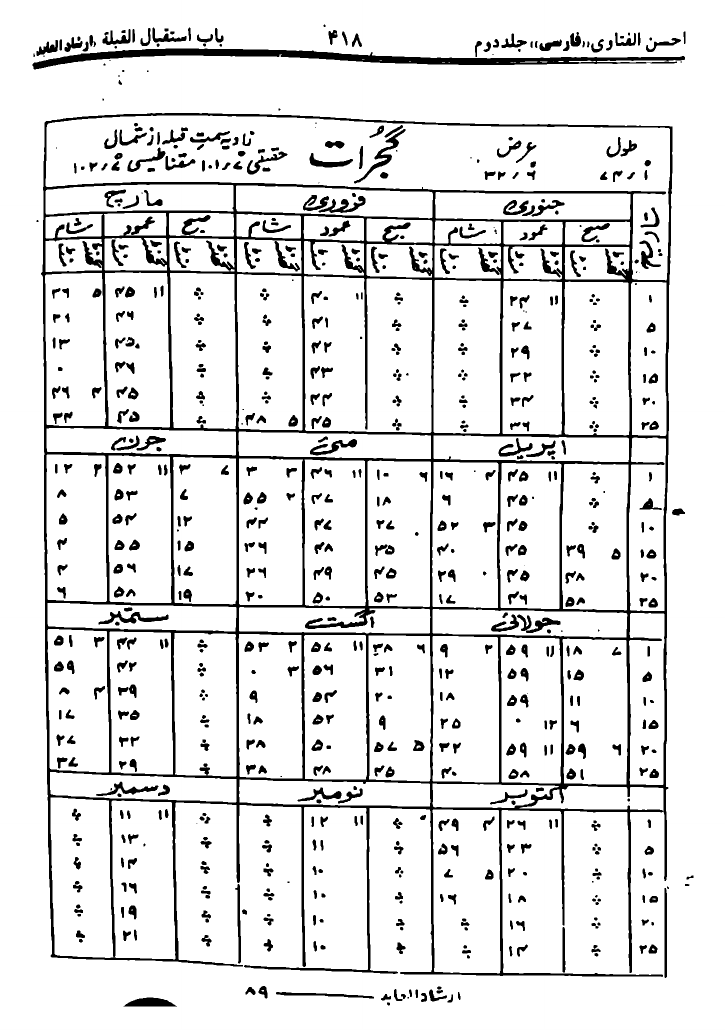 احسن الفتاوی ,,فارسی،، جلد دوم ۴۱۸ باب استقبال القبلة ,,ارشاد العابد،،
طول عرض گجرات زاویہ سمت قبلہ از شمال
۷۴٫۱ ۳۲٫۶ حقیقی ۱۰۱٫۷ مقناطیسی ۱۰۲٫۷
تاریخ جنوری فروری مارچ
صبح عمود شام صبح عمود شام صبح عمود شام
گھنٹہ منٹ گھنٹہ منٹ گھنٹہ منٹ گھنٹہ منٹ گھنٹہ منٹ گھنٹہ منٹ گھنٹہ منٹ گھنٹہ منٹ گھنٹہ منٹ
۱ ÷ ۱۱ ۲۴ ÷ ÷ ۱۱ ۴۰ ÷ ÷ ۱۱ ۴۵ ۵ ۳۶
۵ ÷ ۲۷ ÷ ÷ ۴۱ ÷ ÷ ۴۶ ۳۱
۱۰ ÷ ۲۹ ÷ ÷ ۴۲ ÷ ÷ ۴۵ ۱۳
۱۵ ÷ ۳۲ ÷ ÷ ۴۳ ÷ ÷ ۴۶ ۰
۲۰ ÷ ۳۴ ÷ ÷ ۴۴ ÷ ÷ ۴۵ ۴ ۴۶
۲۵ ÷ ۳۶ ÷ ÷ ۴۵ ۵ ۴۸ ÷ ۴۵ ۳۴
اپریل مئی جون
۱ ÷ ۱۱ ۴۵ ۴ ۱۶ ۶ ۱۰ ۱۱ ۴۶ ۳ ۳ ۷ ۳ ۱۱ ۵۲ ۲ ۱۲
۵ ÷ ۴۵ ۶ ۱۸ ۴۷ ۲ ۵۵ ۷ ۵۳ ۸
۱۰ ÷ ۴۵ ۳ ۵۲ ۲۷ ۴۷ ۴۴ ۱۲ ۵۴ ۵
۱۵ ۵ ۳۹ ۴۵ ۴۰ ۳۵ ۴۸ ۳۶ ۱۵ ۵۵ ۴
۲۰ ۴۸ ۴۵ ۲۹ ۴۵ ۴۹ ۲۶ ۱۷ ۵۶ ۴
۲۵ ۵۸ ۴۶ ۱۷ ۵۳ ۵۰ ۲۰ ۱۹ ۵۸ ۶
جولائی اگست ستمبر
۱ ۷ ۱۸ ۱۱ ۵۹ ۲ ۹ ۶ ۳۸ ۱۱ ۵۷ ۲ ۵۳ ÷ ۱۱ ۴۴ ۳ ۵۱
۵ ۱۵ ۵۹ ۱۲ ۳۱ ۵۶ ۳ ۰ ÷ ۴۲ ۵۹
۱۰ ۱۱ ۵۹ ۱۸ ۲۰ ۵۴ ۹ ÷ ۳۹ ۴ ۸
۱۵ ۶ ۱۲ ۰ ۲۵ ۹ ۵۲ ۱۸ ÷ ۳۵ ۱۷
۲۰ ۶ ۵۹ ۱۱ ۵۹ ۳۲ ۵ ۵۷ ۵۰ ۲۸ ÷ ۳۲ ۲۷
۲۵ ۵۱ ۵۸ ۴۰ ۴۵ ۴۸ ۳۸ ÷ ۲۹ ۳۷
اکتوبر نومبر دسمبر
۱ ÷ ۱۱ ۲۶ ۴ ۴۹ ÷ ۱۱ ۱۲ ÷ ÷ ۱۱ ۱۱ ÷
۵ ÷ ۲۳ ۵۶ ÷ ۱۱ ÷ ÷ ۱۳ ÷
۱۰ ÷ ۲۰ ۵ ۷ ÷ ۱۰ ÷ ÷ ۱۴ ÷
۱۵ ÷ ۱۸ ۱۶ ÷ ۱۰ ÷ ÷ ۱۶ ÷
۲۰ ÷ ۱۶ ÷ ÷ ۱۰ ÷ ÷ ۱۹ ÷
۲۵ ÷ ۱۴ ÷ ÷ ۱۰ ÷ ÷ ۲۱ ÷
ارشاد العابد ——— ۸۹